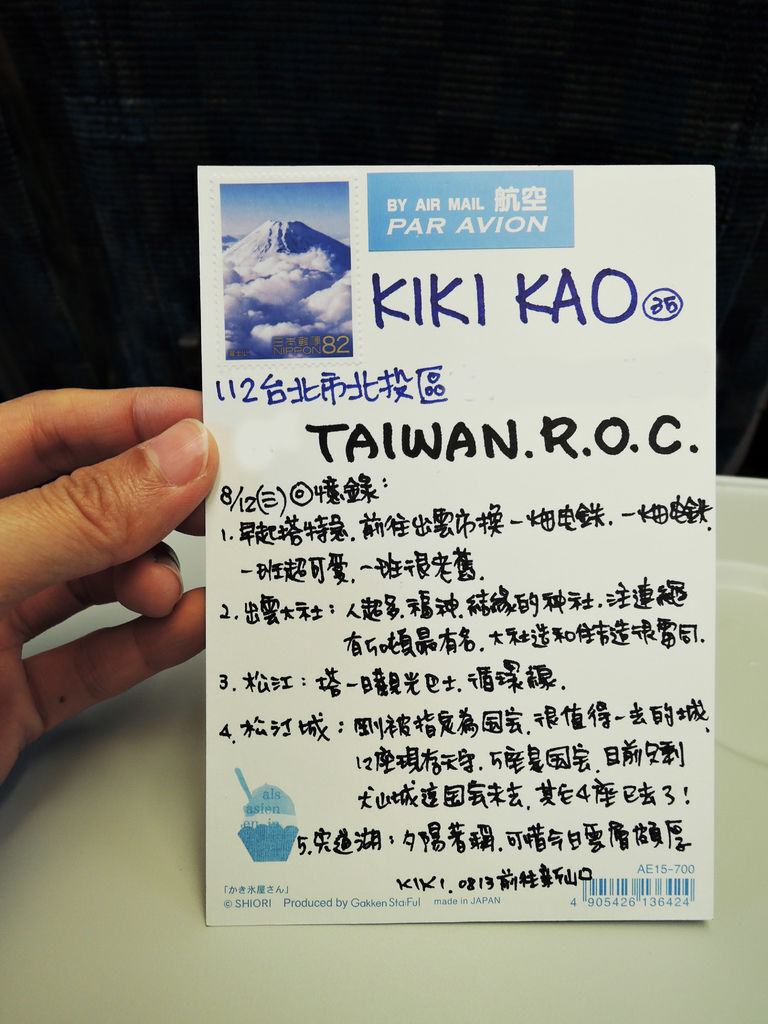 BY AIR MAIL 航空
PAR AVION
日本郵便
NIPPON 82
富士山
KIKI KAO 35
112台北市北投區
TAIWAN.R.O.C.
8/12(三)回憶錄:
1. 早起搭特急.前往出雲市換一畑电鉄.一畑电鉄
一班超可愛.一班很老舊.
2. 出雲大社:人超多.福神.結緣的神社.注連繩
有5噸最有名.大社造和住吉造很雷同.
3. 松江:搭一日觀光巴士.循環線.
4. 松江城:剛被指定為国宝.很值得一去的城.
12座現存天守.5座是国宝.目前只剩
犬山城這国宝未去,其它4座已去了!
5. 宍道湖:夕陽著稱.可惜今日雲層頗厚
KIKI. 0813前往新山口
als
asien
en in
「かき氷屋さん」
© SHIORI Produced by Gakken Sta:Ful made in JAPAN
AE15-700
4 905426 136424